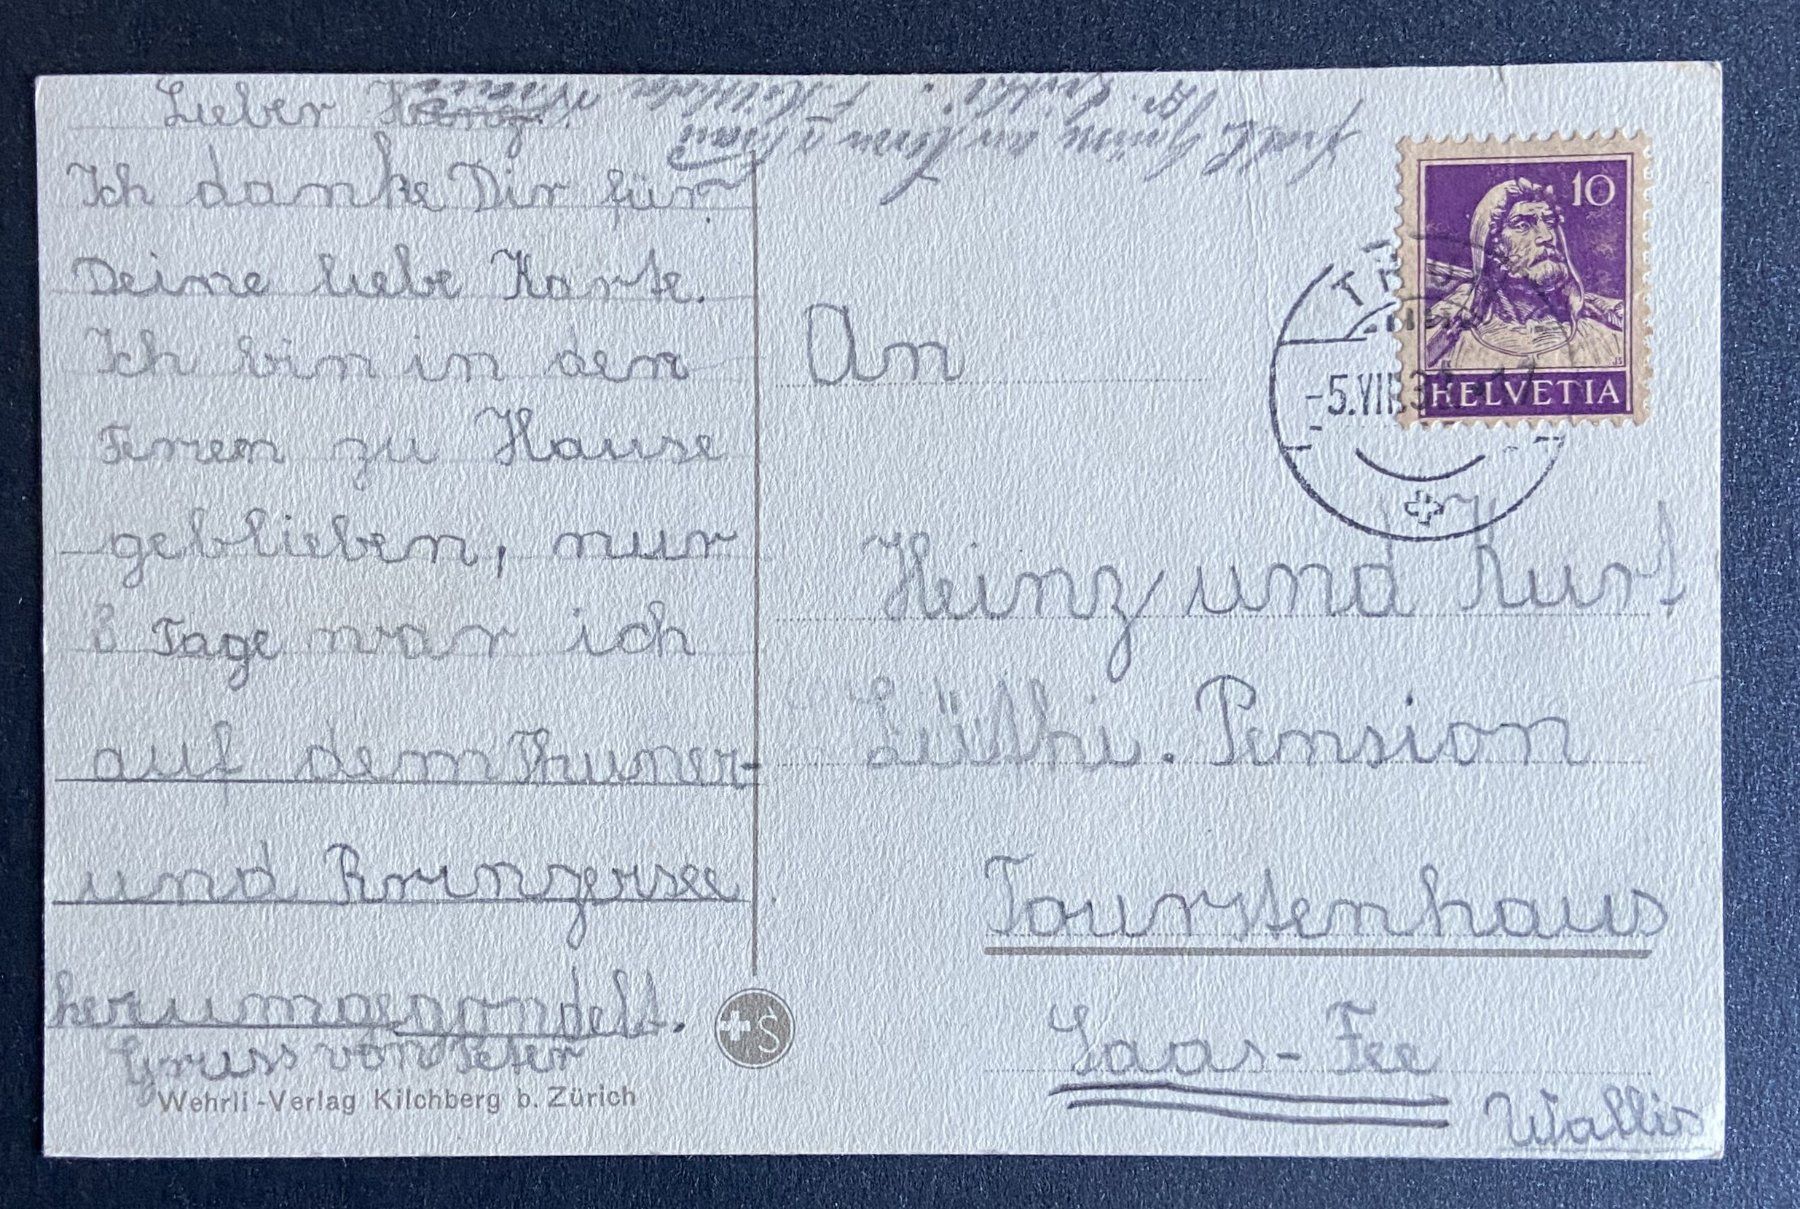 Lieber Heinz!
Ich danke Dir für
Deine liebe Karte.
Ich bin in den
Ferien zu Hause
geblieben, nur
3 Tage war ich
auf dem Thuner-
und Brinzersee
herumgegondelt.
Gruss von Peter
Wehrli-Verlag Kilchberg b. Zürich
S
Grüsse an Herrn & Frau
10
HELVETIA
-5.VIII.3
An
Heinz und Kurt
Lüthi. Pension
Touristenhaus
Saas-Fee
Wallis